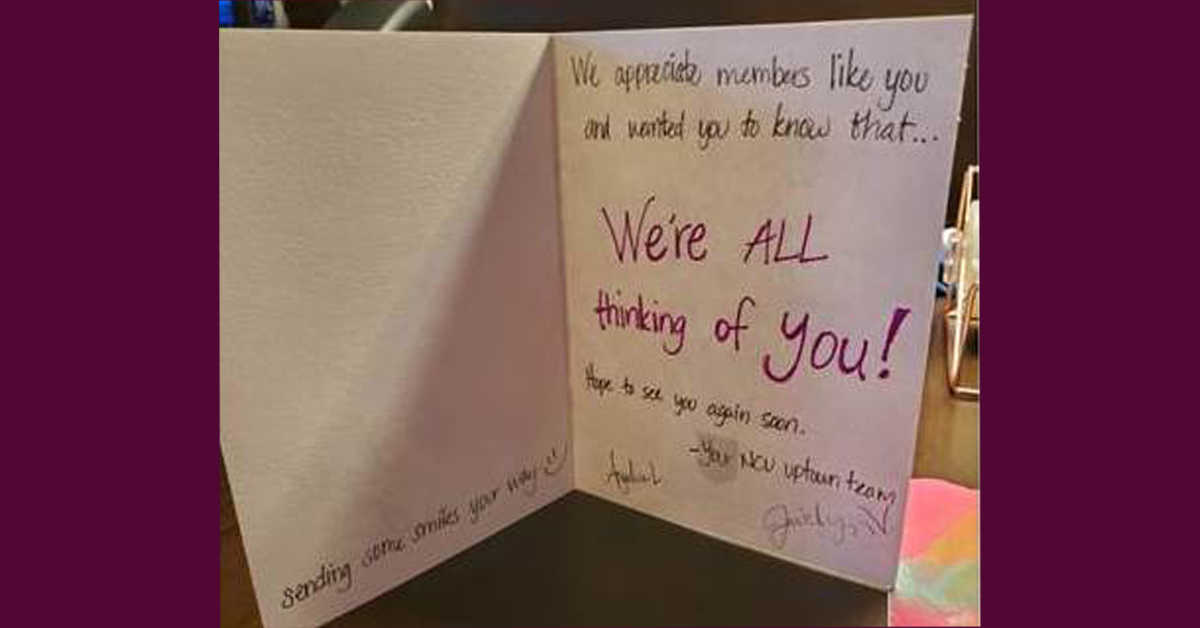 sending some smiles your way
We appreciate members like you
and wanted you to know that...
We're ALL
thinking of you!
Hope to see you again soon.
-Your NCU uptown team